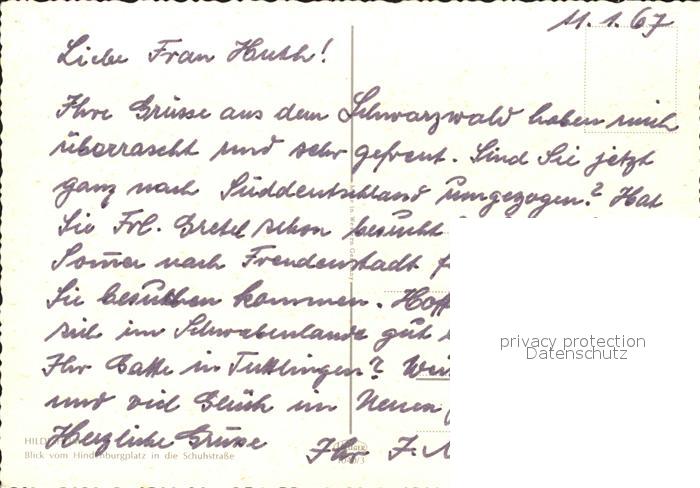 11.1.67
Liebe Frau Huth!
Ihre Grüsse aus dem Schwarzwald haben mich
überrascht und sehr gefreut. Sind Sie jetzt
ganz nach Süddeutschland umgezogen? Hat
Sie Frl. Gretel schon besucht
Somer nach Freudenstadt
Sie besuchen kommen. Hoff
sich im Schwabenlande gut
Ihr Gatte in Tuttlingen?
und viel Glück im Neuen
Herzliche Grüsse Ihr
HILD
Blick vom Hindenburgplatz in die Schuhstraße
privacy protection
Datenschutz